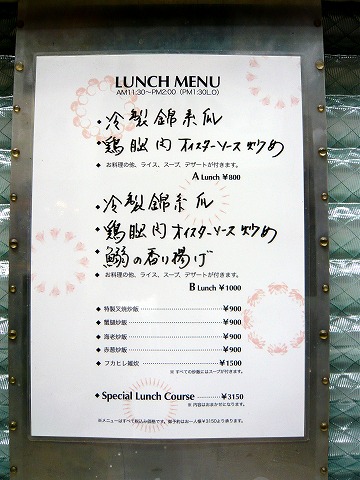 LUNCH MENU
AM11:30~PM2:00 (PM1:30L.O)
・冷製錦糸瓜
・鶏胸肉オイスターソース炒め
◆ お料理の他、ライス、スープ、デザートが付きます。
A Lunch ¥800
・冷製錦糸瓜
・鶏胸肉オイスターソース炒め
・鰯の香り揚げ
◆ お料理の他、ライス、スープ、デザートが付きます。
B Lunch ¥1000
◆ 特製叉焼炒飯 ¥900
◆ 蟹腿炒飯 ¥900
◆ 海老炒飯 ¥900
◆ 赤葱炒飯 ¥900
◆ フカヒレ雑炊 ¥1500
※ すべての炒飯にはスープが付きます。
◆ Special Lunch Course ¥3150
※ 内容はおまかせになります。
※メニューはすべて税込み価格です。御予約はお一人様¥3150より承ります。